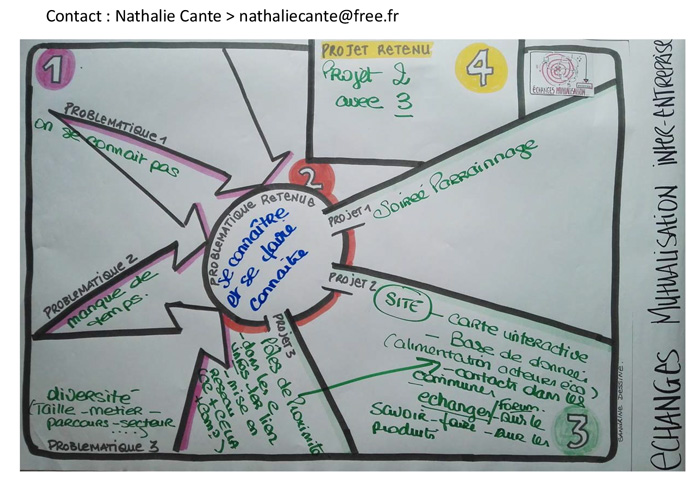 Contact : Nathalie Cante > nathaliecante@free.fr
1
PROBLEMATIQUE 1
on se connait pas
PROBLEMATIQUE 2
manque de
temps.
diversité
(Taille - metier -
parcours - secteur
.....)
PROBLEMATIQUE 3
2
PROBLEMATIQUE RETENUE
se connaître
et se faire
connaitre
PROJET RETENU
Projet 2
avec 3
4
ECHANGES MUTUALISATION
PROJET 1
Soireé Parrainnage
PROJET 2
SITE
- CARTE interactive
- Base de donneé
(alimentation acteurs éco)
- contacts dans les
communes
- forum.
echanges sur le
savoir-faire - sur les
produits
PROJET 3
Pôles de Proximité
- dans les
- 1er lien
mise en
Reseau
3
SANDRINE DESSINE.
ECHANGES MUTUALISATION INTER-ENTREPRISE